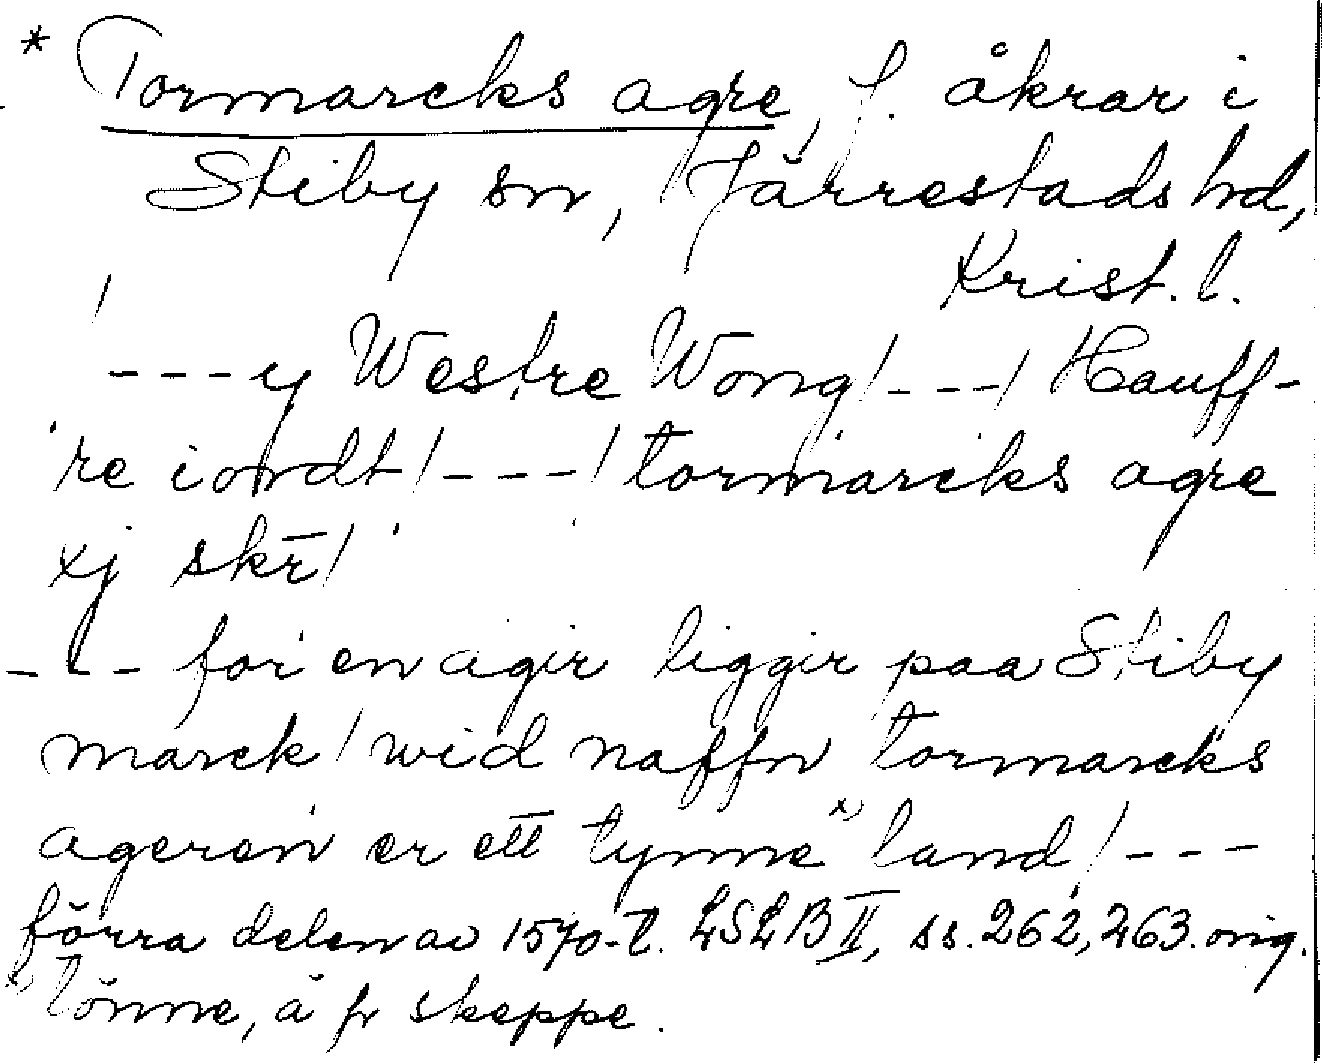 * Tormarcks agre, f. åkrar i
Stiby sn, Järrestads hd,
Krist. l.
---y Westre Wong/---/ Hauff-
re iordt/---/ tormarcks agre
xj skr̄/
--- for en agir liggir paa Stiby
marck / wid naffn tormarcks
ageren er ett tynne x) land/---
förra delen av 1570-t. LSLB II, ss. 262, 263. orig.
x) Tönne, ä fr skeppe.